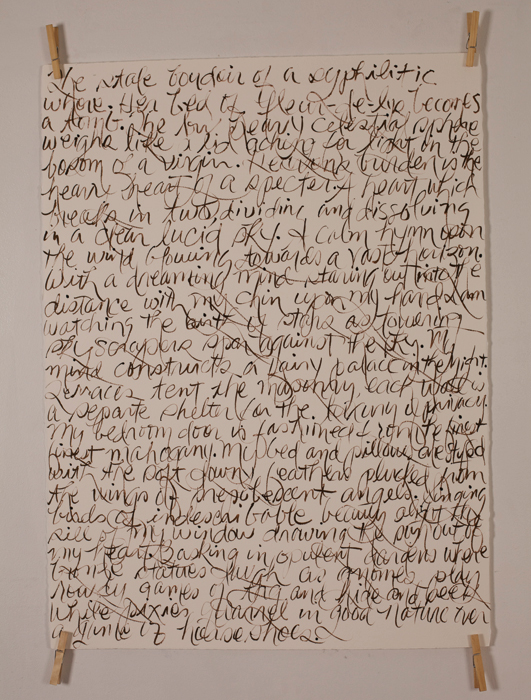 The stale boudoir of a syphilitic
whore. Her bed of fleur-de-lys becomes
a tomb. The low pearly celestial sphere
weighs like a lid aching for light on the
bosom of a virgin. Heaving burden is the
heavy heart of a specter. A heart which
breaks in two, dividing and dissolving
in a clear lucid sky. A calm hymn upon
the wind blowing towards a vast horizon.
With a dreaming mind staring out into the
distance with my chin upon my hands I am
watching the birth of stars as towering
skyscrapers span against the sky. My
mind constructs a fairy palace in the night.
Terraces tent the masonry each
a separate shelter for the luxury of privacy.
My bedroom door is fashioned from the finest
finest mahogany. My bed and pillows are stuffed
with the soft downy feathers plucked from
the wings of pubescent angels. Singing
birds of indescribable beauty on the
sill of my window drawing the out of
my heart. Basking in opulent gardens where
statues laugh as gnomes play
rowdy games of tag and hide and seek
while pixies quarrel in good nature over
a game of horse shoes.